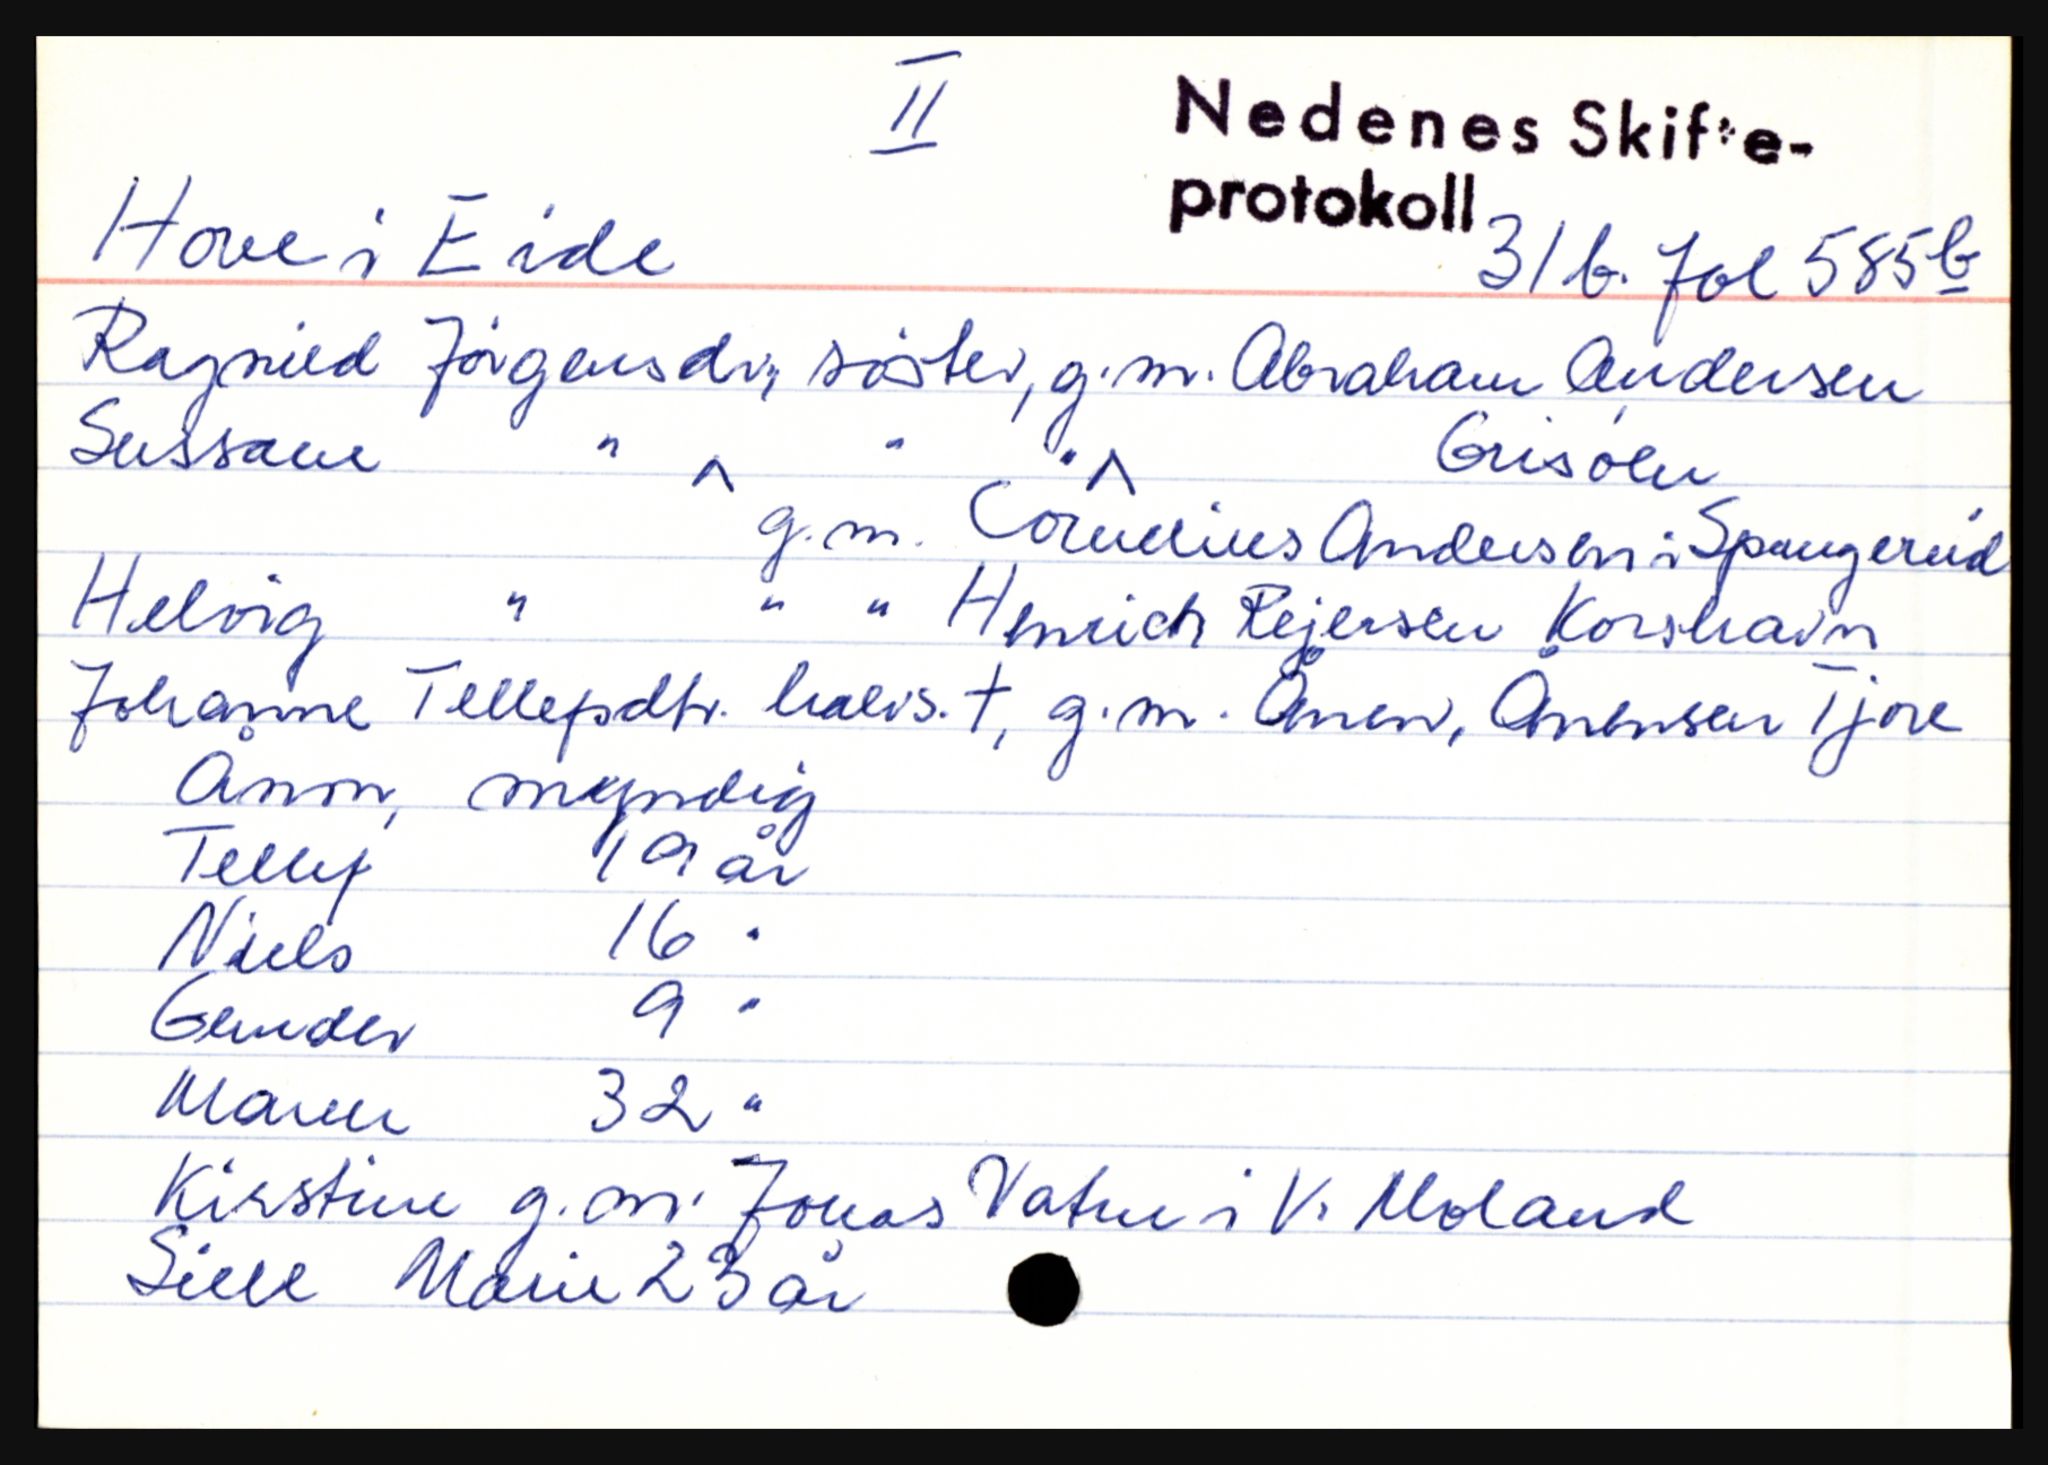 II
Nedenes Skifte-
protokoll
Hove i Eide 31b. fol 585b
Ragnild Jörgensdr, söster, g.m. Abraham Andersen
Sussane " " " Grisöen
g.m. Cornelius Andersen i Spangereid
Helvig " " " Henrich Rejersen Korshavn
Johanne Tellefsdtr. halvs. †, g.m. Ånen, Ånensen Tjore
Ånon, myndig
Tellef 19 år
Niels 16 "
Gunder 9 "
Maren 32 "
Kirstine g.m. Jonas Vatne i V. Moland
Sille Marie 23 år